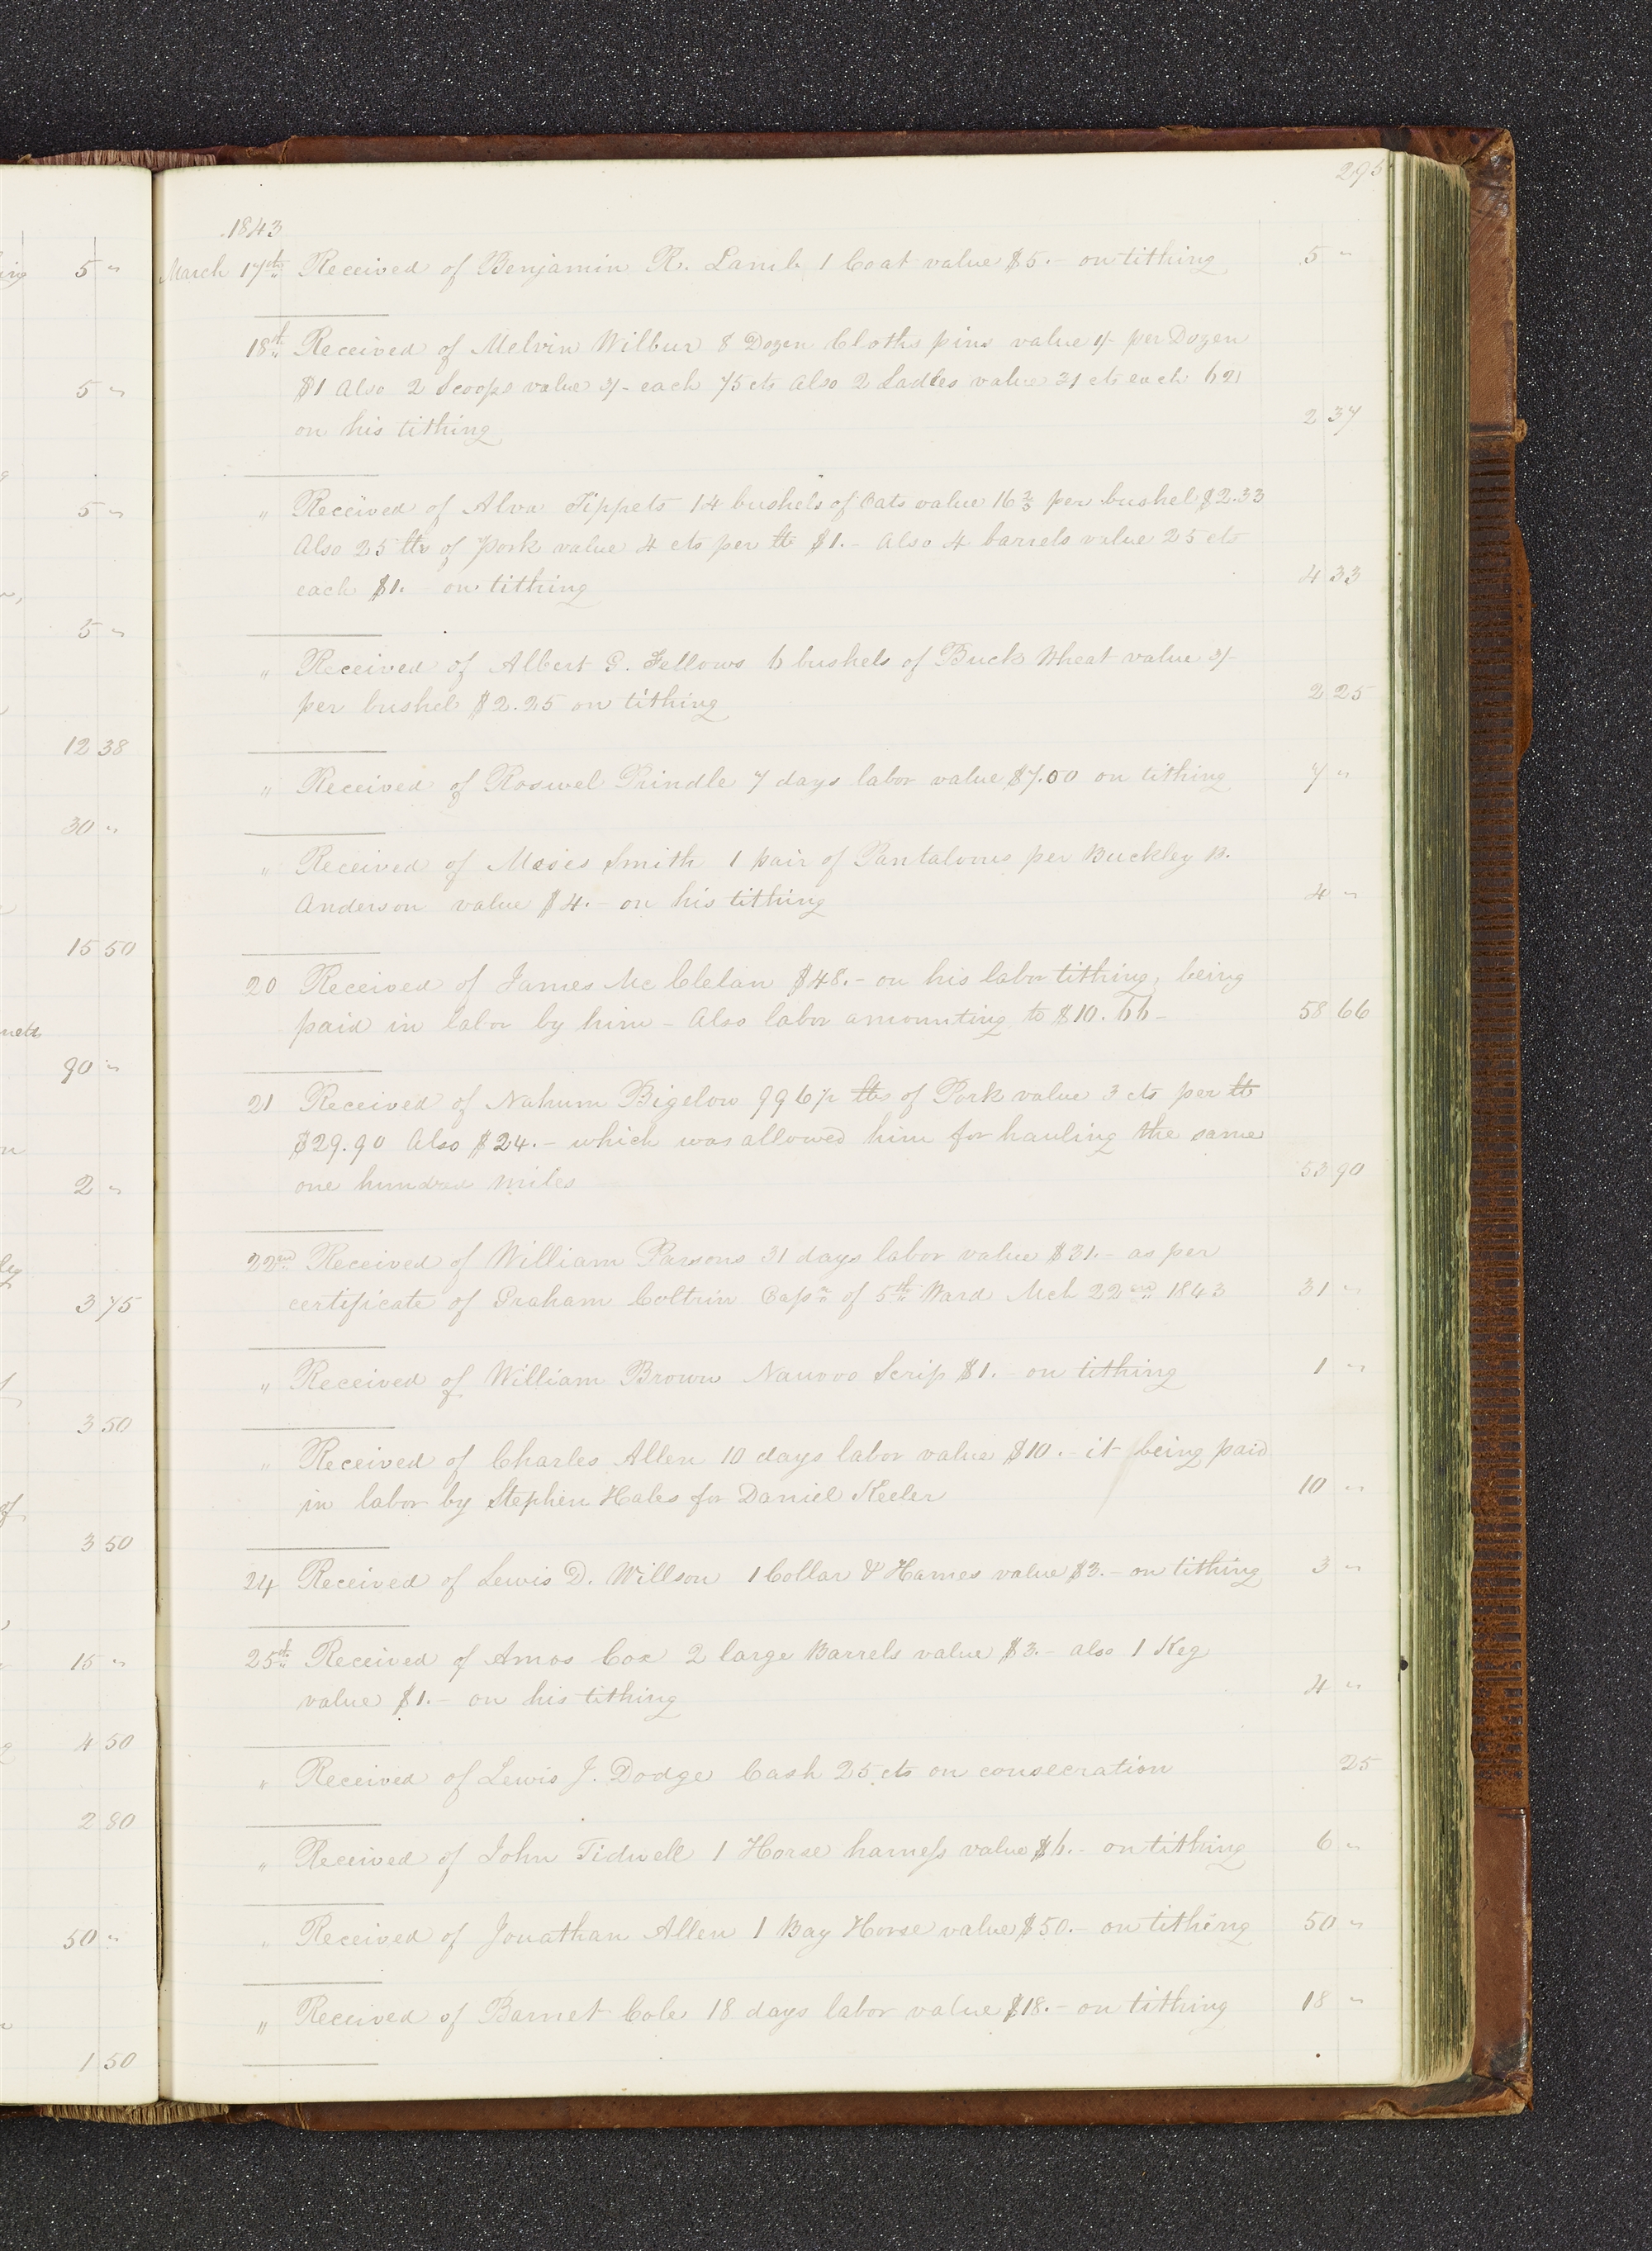 295
1843
March 17th Received of Benjamin R. Lamb 1 Coat value $5.- on tithing 5 "
18th Received of Melvin Wilbur 8 Dozen Cloths pins value 1/- per Dozen
$1 Also 2 Scoops value 3/- each 75 cts Also 2 Ladles value 31 cts each 62
on his tithing 2 37
" Received of Alva Tippets 14 bushels of Oats value 16 2/3 per bushel $2.33
Also 25 lbs of Pork value 4 cts per lb $1.- Also 4 barrels value 25 cts
each $1. on tithing 4 33
" Received of Albert G. Fellows 6 bushels of Buck Wheat value 3/-
per bushel $2.25 on tithing 2 25
" Received of Roswel Prindle 7 days labor value $7.00 on tithing 7 "
" Received of Moses Smith 1 pair of Pantaloons per Buckley B.
Anderson value $4.- on his tithing 4 "
20 Received of James Mc Clelan $48.- on his labor tithing, being
paid in labor by him - Also labor amounting to $10.66- 58 66
21 Received of Nahum Bigelow 996 1/2 lbs of Pork value 3 cts per lb
$29.90 Also $24.- which was allowed him for hauling the same
one hundred miles 53 90
22nd Received of William Parsons 31 days labor value $31.- as per
certificate of Graham Coltrin Capn of 5th Ward Mch 22nd 1843 31 "
" Received of William Brown Nauvoo Scrip $1.- on tithing 1 "
" Received of Charles Allen 10 days labor value $10.- it being paid
in labor by Stephen Hales for Daniel Keeler 10 "
24 Received of Lewis D. Willson 1 Collar & Hames value $3.- on tithing 3 "
25th Received of Amos Cox 2 large Barrels value $3.- also 1 Keg
value $1.- on his tithing 4 "
" Received of Lewis J. Dodge Cash 25 cts on consecration 25
" Received of John Tidwell 1 Horse harness value $6.- on tithing 6 "
" Received of Jonathan Allen 1 Bay Horse value $50.- on tithing 50 "
" Received of Barnet Cole 18 days labor value $18.- on tithing 18 "
5 "
5 "
5 "
5 "
12 38
30 "
15 50
90 "
2 "
3 75
3 50
3 50
15 "
4 50
2 80
50 "
1 50